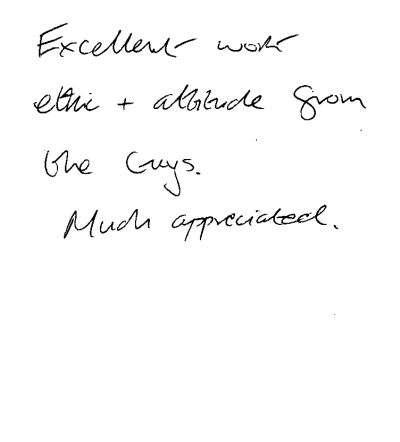 Excellent work
ethic + attitude from
the Guys.
Much appreciated.